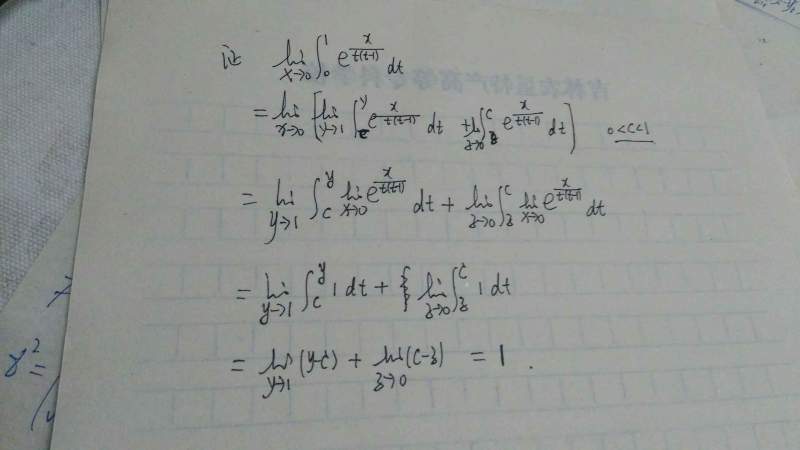 证 lim_{x→0} ∫_0^1 e^{x/(t(t-1))} dt
= lim_{x→0} [ lim_{y→1} ∫_c^y e^{x/(t(t-1))} dt + lim_{z→0} ∫_z^c e^{x/(t(t-1))} dt ] 0<c<1
= lim_{y→1} ∫_c^y lim_{x→0} e^{x/(t(t-1))} dt + lim_{z→0} ∫_z^c lim_{x→0} e^{x/(t(t-1))} dt
= lim_{y→1} ∫_c^y 1 dt + { lim_{z→0} ∫_z^c 1 dt
= lim_{y→1} (y-c) + lim_{z→0} (c-z) = 1 .